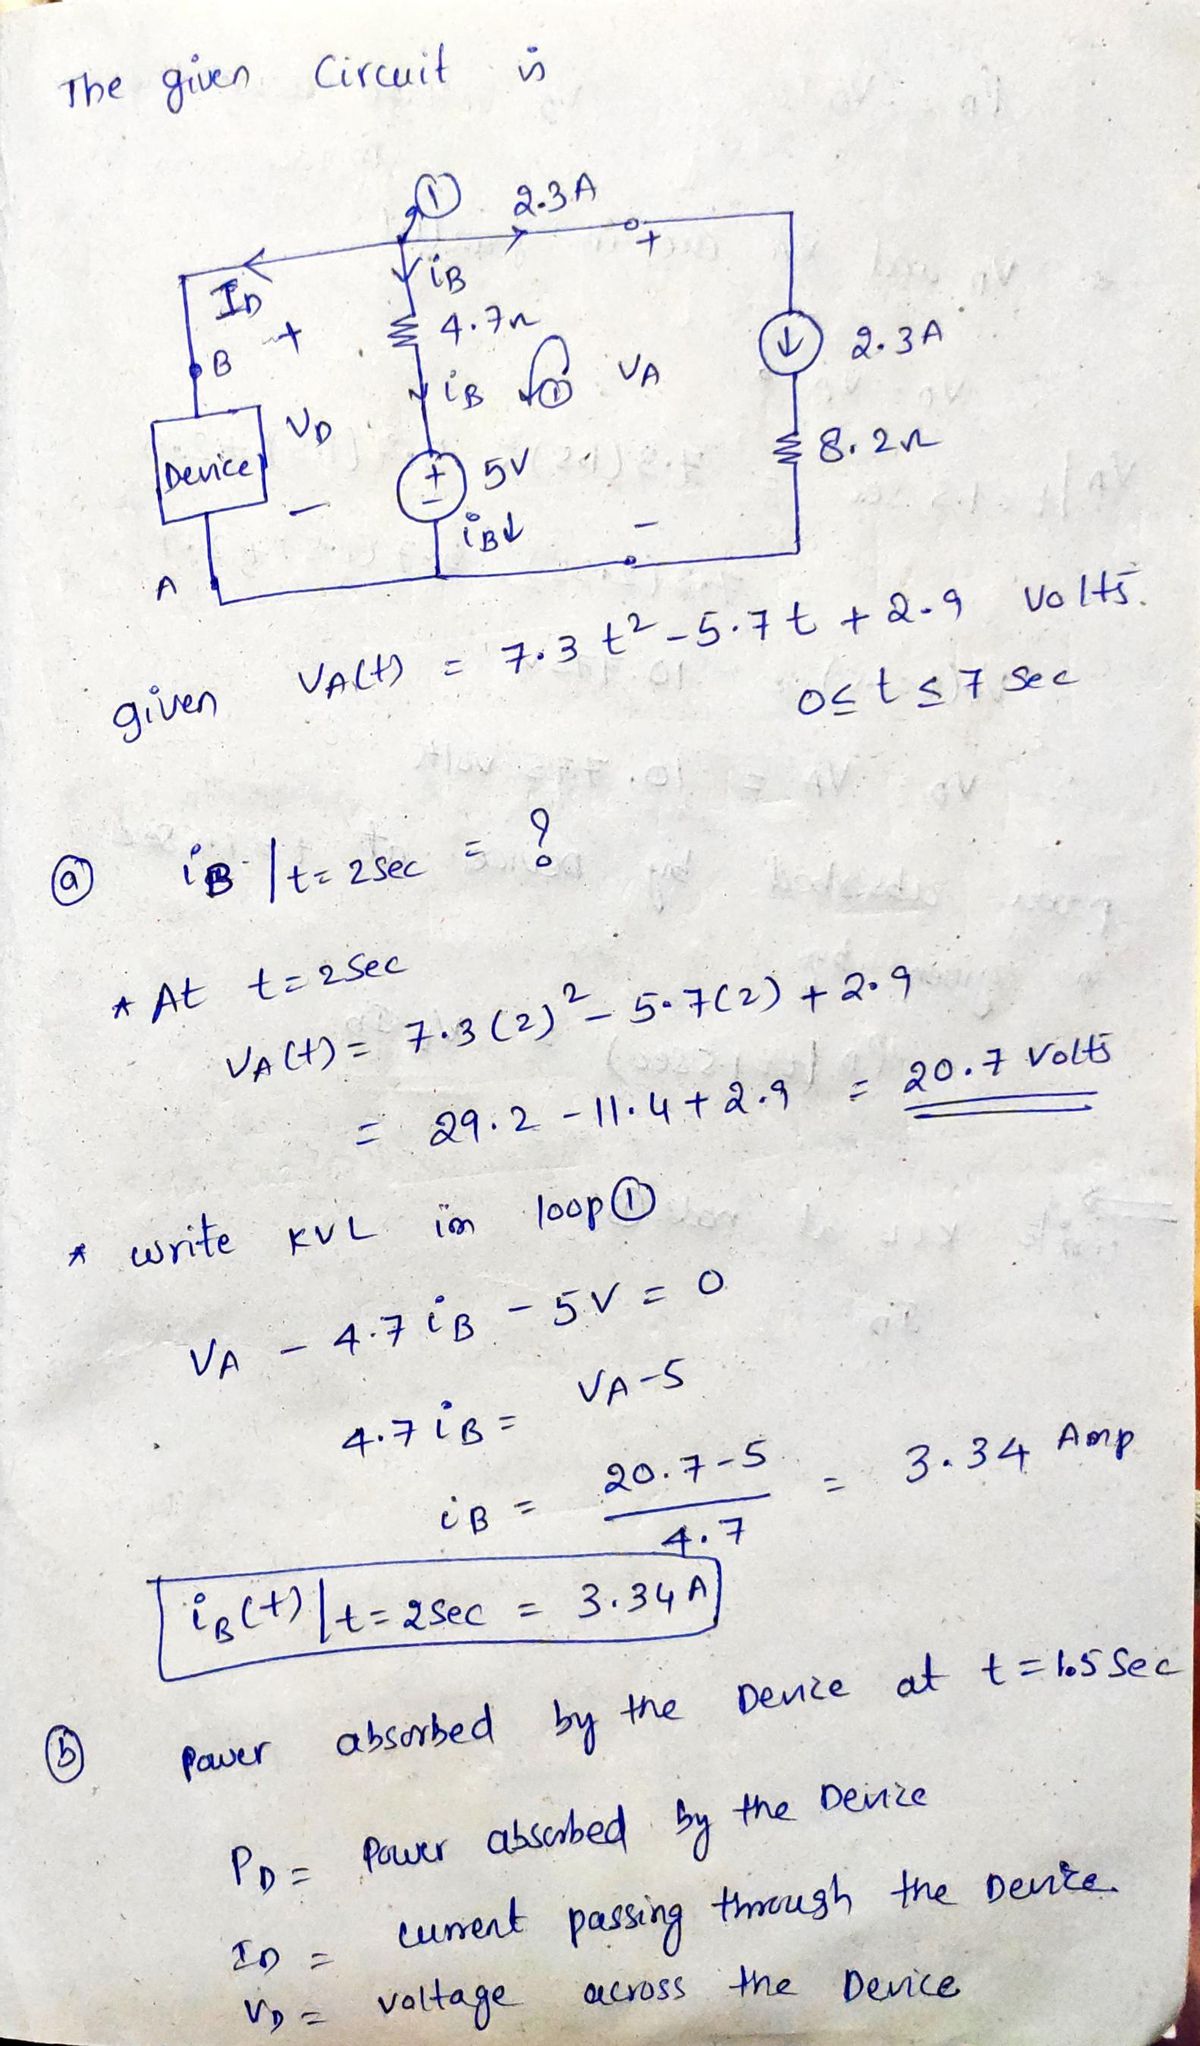 The given Circuit is
① 2.3A
ID iB +
+ 4.7Ω 2.3A
B iB ① VA
VD 8.2Ω
Device + 5V
- - iB↓ -
A
given VA(t) = 7.3 t² - 5.7 t + 2.9 Volts.
0 ≤ t ≤ 7 Sec
ⓐ iB | t = 2 Sec = ?
* At t = 2 Sec
VA(t) = 7.3 (2)² - 5.7(2) + 2.9
= 29.2 - 11.4 + 2.9 = 20.7 Volts
* write KVL in loop ①
VA - 4.7 iB - 5V = 0
4.7 iB = VA - 5
iB = 20.7 - 5 / 4.7 = 3.34 Amp
iB(t) | t = 2 Sec = 3.34 A
ⓑ Power absorbed by the Device at t = 1.5 Sec
PD = Power absorbed by the Device
ID = current passing through the Device.
VD = voltage across the Device